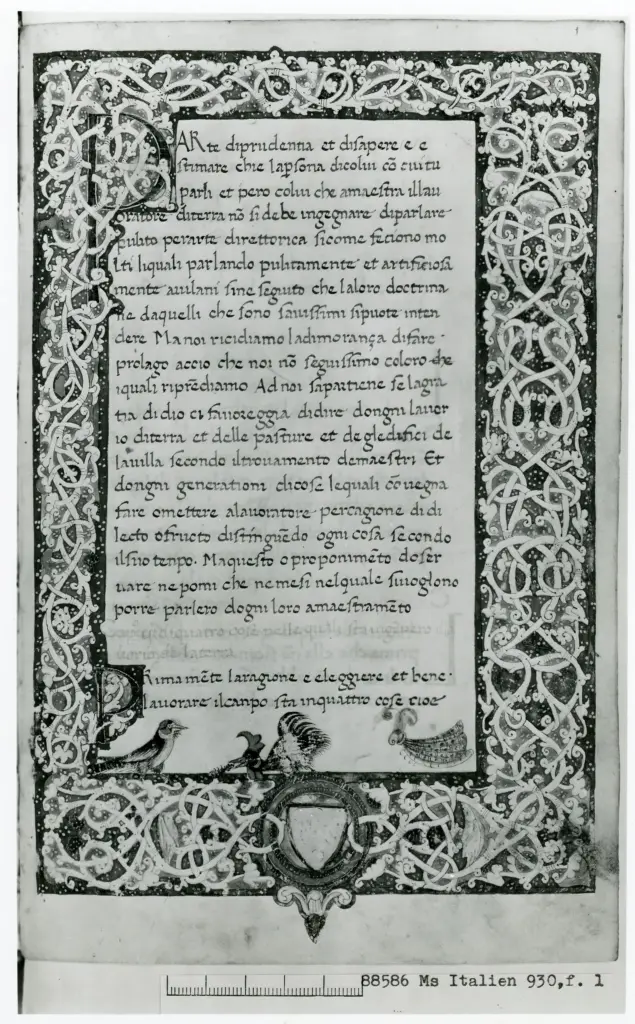 PARte diprudentia et disapere e e
stimare chie lapsona dicolui cō cuitu
parli et pero colui che amaestra illau
oratore diterra nō si debe ingegnare diparlare
pulito perarte direttorica sicome feciono mo
lti liquali parlando pulitamente et artificiosa
mente auilani sine seguito che laloro doctrina
ne daquelli che sono sauissimi sipuote inten
dere Ma noi ricidiamo ladimorança difare
prolago accio che noi nō seguissimo coloro che
iquali riprēdiamo Ad noi sapartiene se lagra
tia di dio ci fauoreggia didire dongni lauor
io diterra et delle pasture et degledifici de
lauilla secondo iltrouamento demaestri Et
dongni generationi dicose lequali cōuegna
fare omettere alauoratore percagione di di
lecto ofructo distinguēdo ogni cosa secondo
ilsuo tenpo. Maquesto e proponimēto doser
uare ne pomi che nemesi nelquale siuoglono
porre parlero dogni loro amaestramēto
PRimamēte laragione e eleggiere et bene
lauorare ilcanpo sta inquattro cose cioe
88586 Ms Italien 930,f. 1